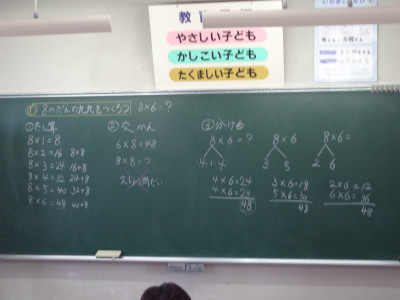 教育目標
やさしい子ども
かしこい子ども
たくましい子ども
8のだんの九九をつくろう 8×6=?
①たし算
8×1=8
8×2=16 8+8
8×3=24 16+8
8×4=32 24+8
8×5=40 32+8
8×6=48 40+8
②交かん
6×8=48
8×8=?
③分ける
8×6=?
4 4
4×6=24
4×6=24
48
8×6
3 5
3×6=18
5×6=30
48
8×6=
2 6
2×6=12
6×6=36
48